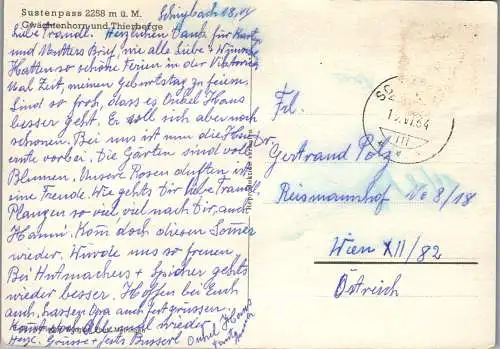 Sustenpass 2258 m ü. M.
Gwächtenhorn und Thierberge
Schüpbach 18.
Liebe Trandl. Herzlichen Dank für Karte
und Mutters Brief, wie alle Liebe + Wünsche
Hatten so schöne Ferien in der
Mal Zeit, meinen Geburtstag zu feiern.
Sind so froh, dass es Onkel Hans
besser geht. Er soll sich aber noch
schonen. Bei uns ist nun die
ernte vorbei. Die Gärten sind voll
Blumen. Unsere Rosen duften ist
eine Freude. Wie gehts Dir liebe Trandl,
Plangen so viel viel nach Dir, auch
Hanni. Kom doch diesen Somer
wieder. Würde uns so freuen.
Bei Hutmachers + Spicher gehts
wieder besser. Hoffen bei Euch
auch. Lassen Opa auch fest grüssen.
wieder
Herzl. Grüsse + feste Busserl
Onkel Hans
Frl.
Gertrand Polz
Reismannhof No 8/18
Wien XII/82
Östreich